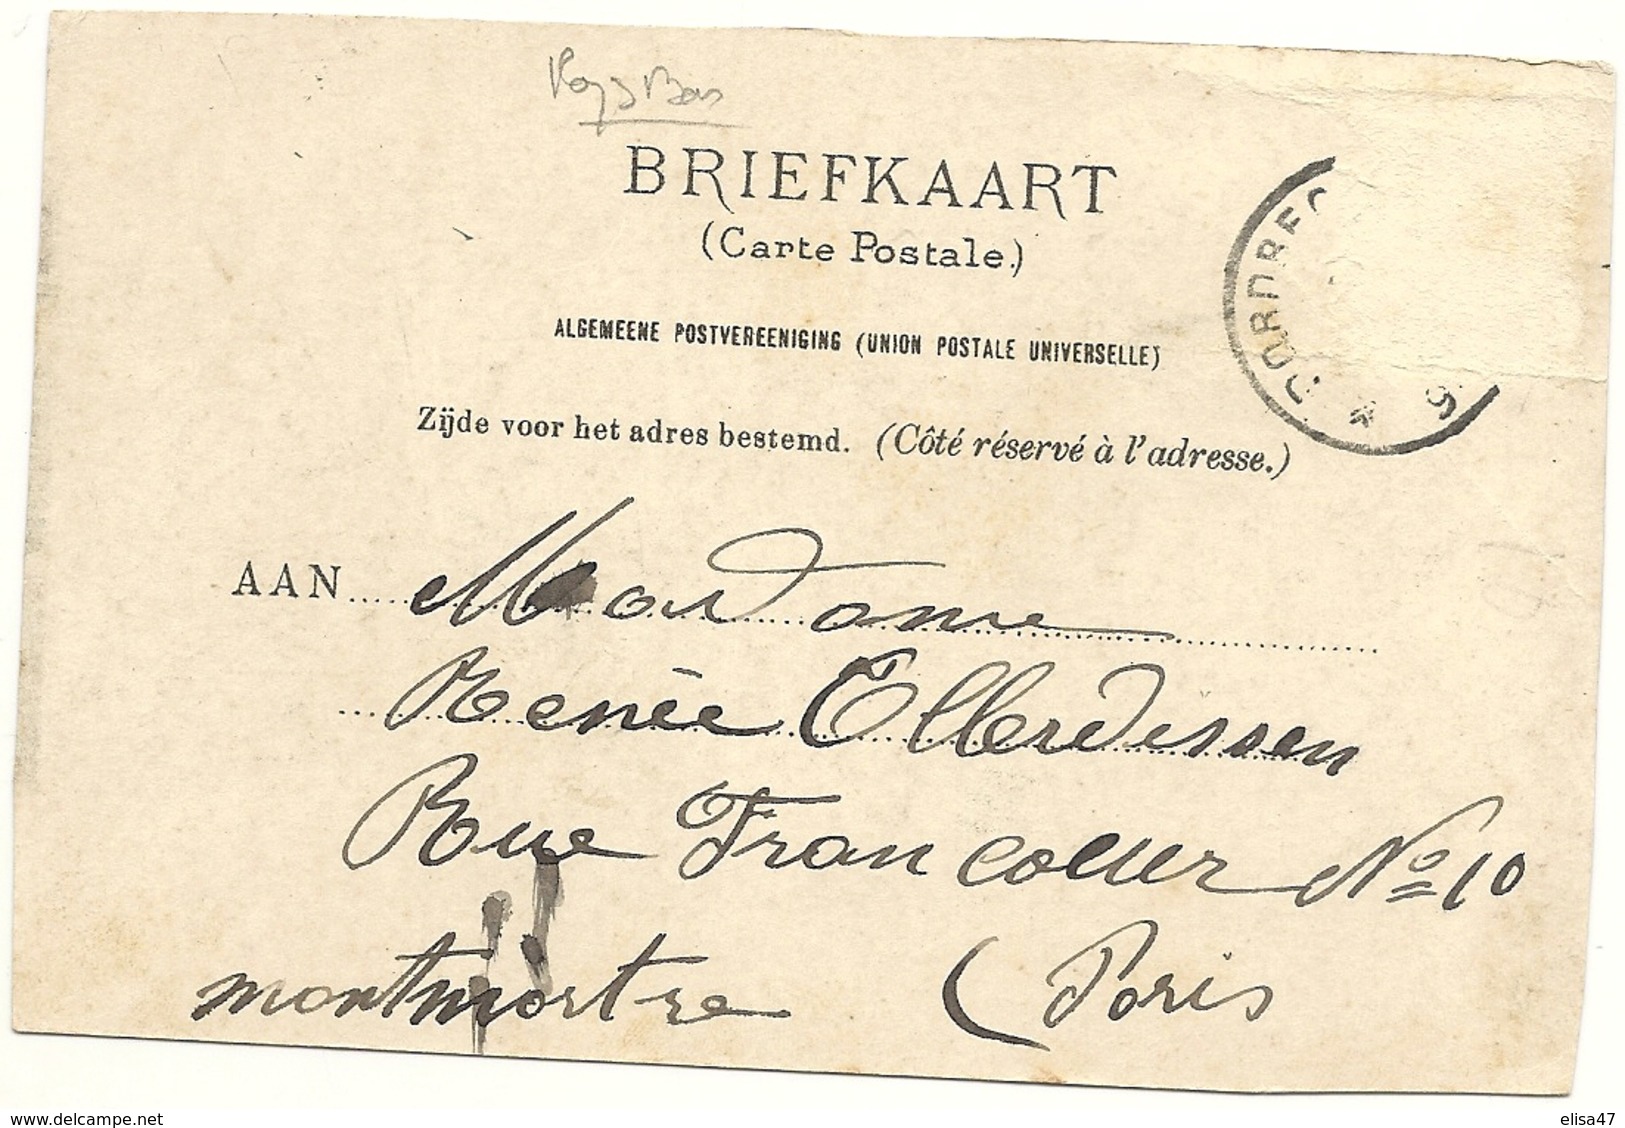 Pays Bas
BRIEFKAART
(Carte Postale.)
ALGEMEENE POSTVEREENIGING (UNION POSTALE UNIVERSELLE)
DORDREC
Zijde voor het adres bestemd. (Côté réservé à l'adresse.)
AAN Madame
Renée Ellerdessen
Rue Francoeur No 10
montmartre (Paris
elisa47